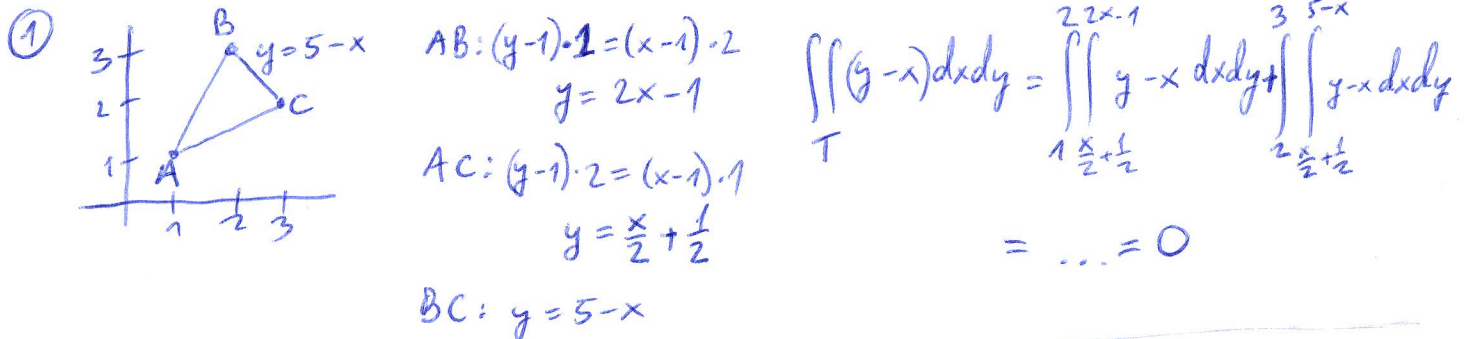 ① B y=5-x
3
2 C
1 A
1 2 3
AB: (y-1)·1=(x-1)·2
y = 2x-1
AC: (y-1)·2=(x-1)·1
y = x/2 + 1/2
BC: y = 5-x
∬_T (y-x)dxdy = ∫_1^2 ∫_{x/2+1/2}^{2x-1} y-x dxdy + ∫_2^3 ∫_{x/2+1/2}^{5-x} y-x dxdy
= ... = 0